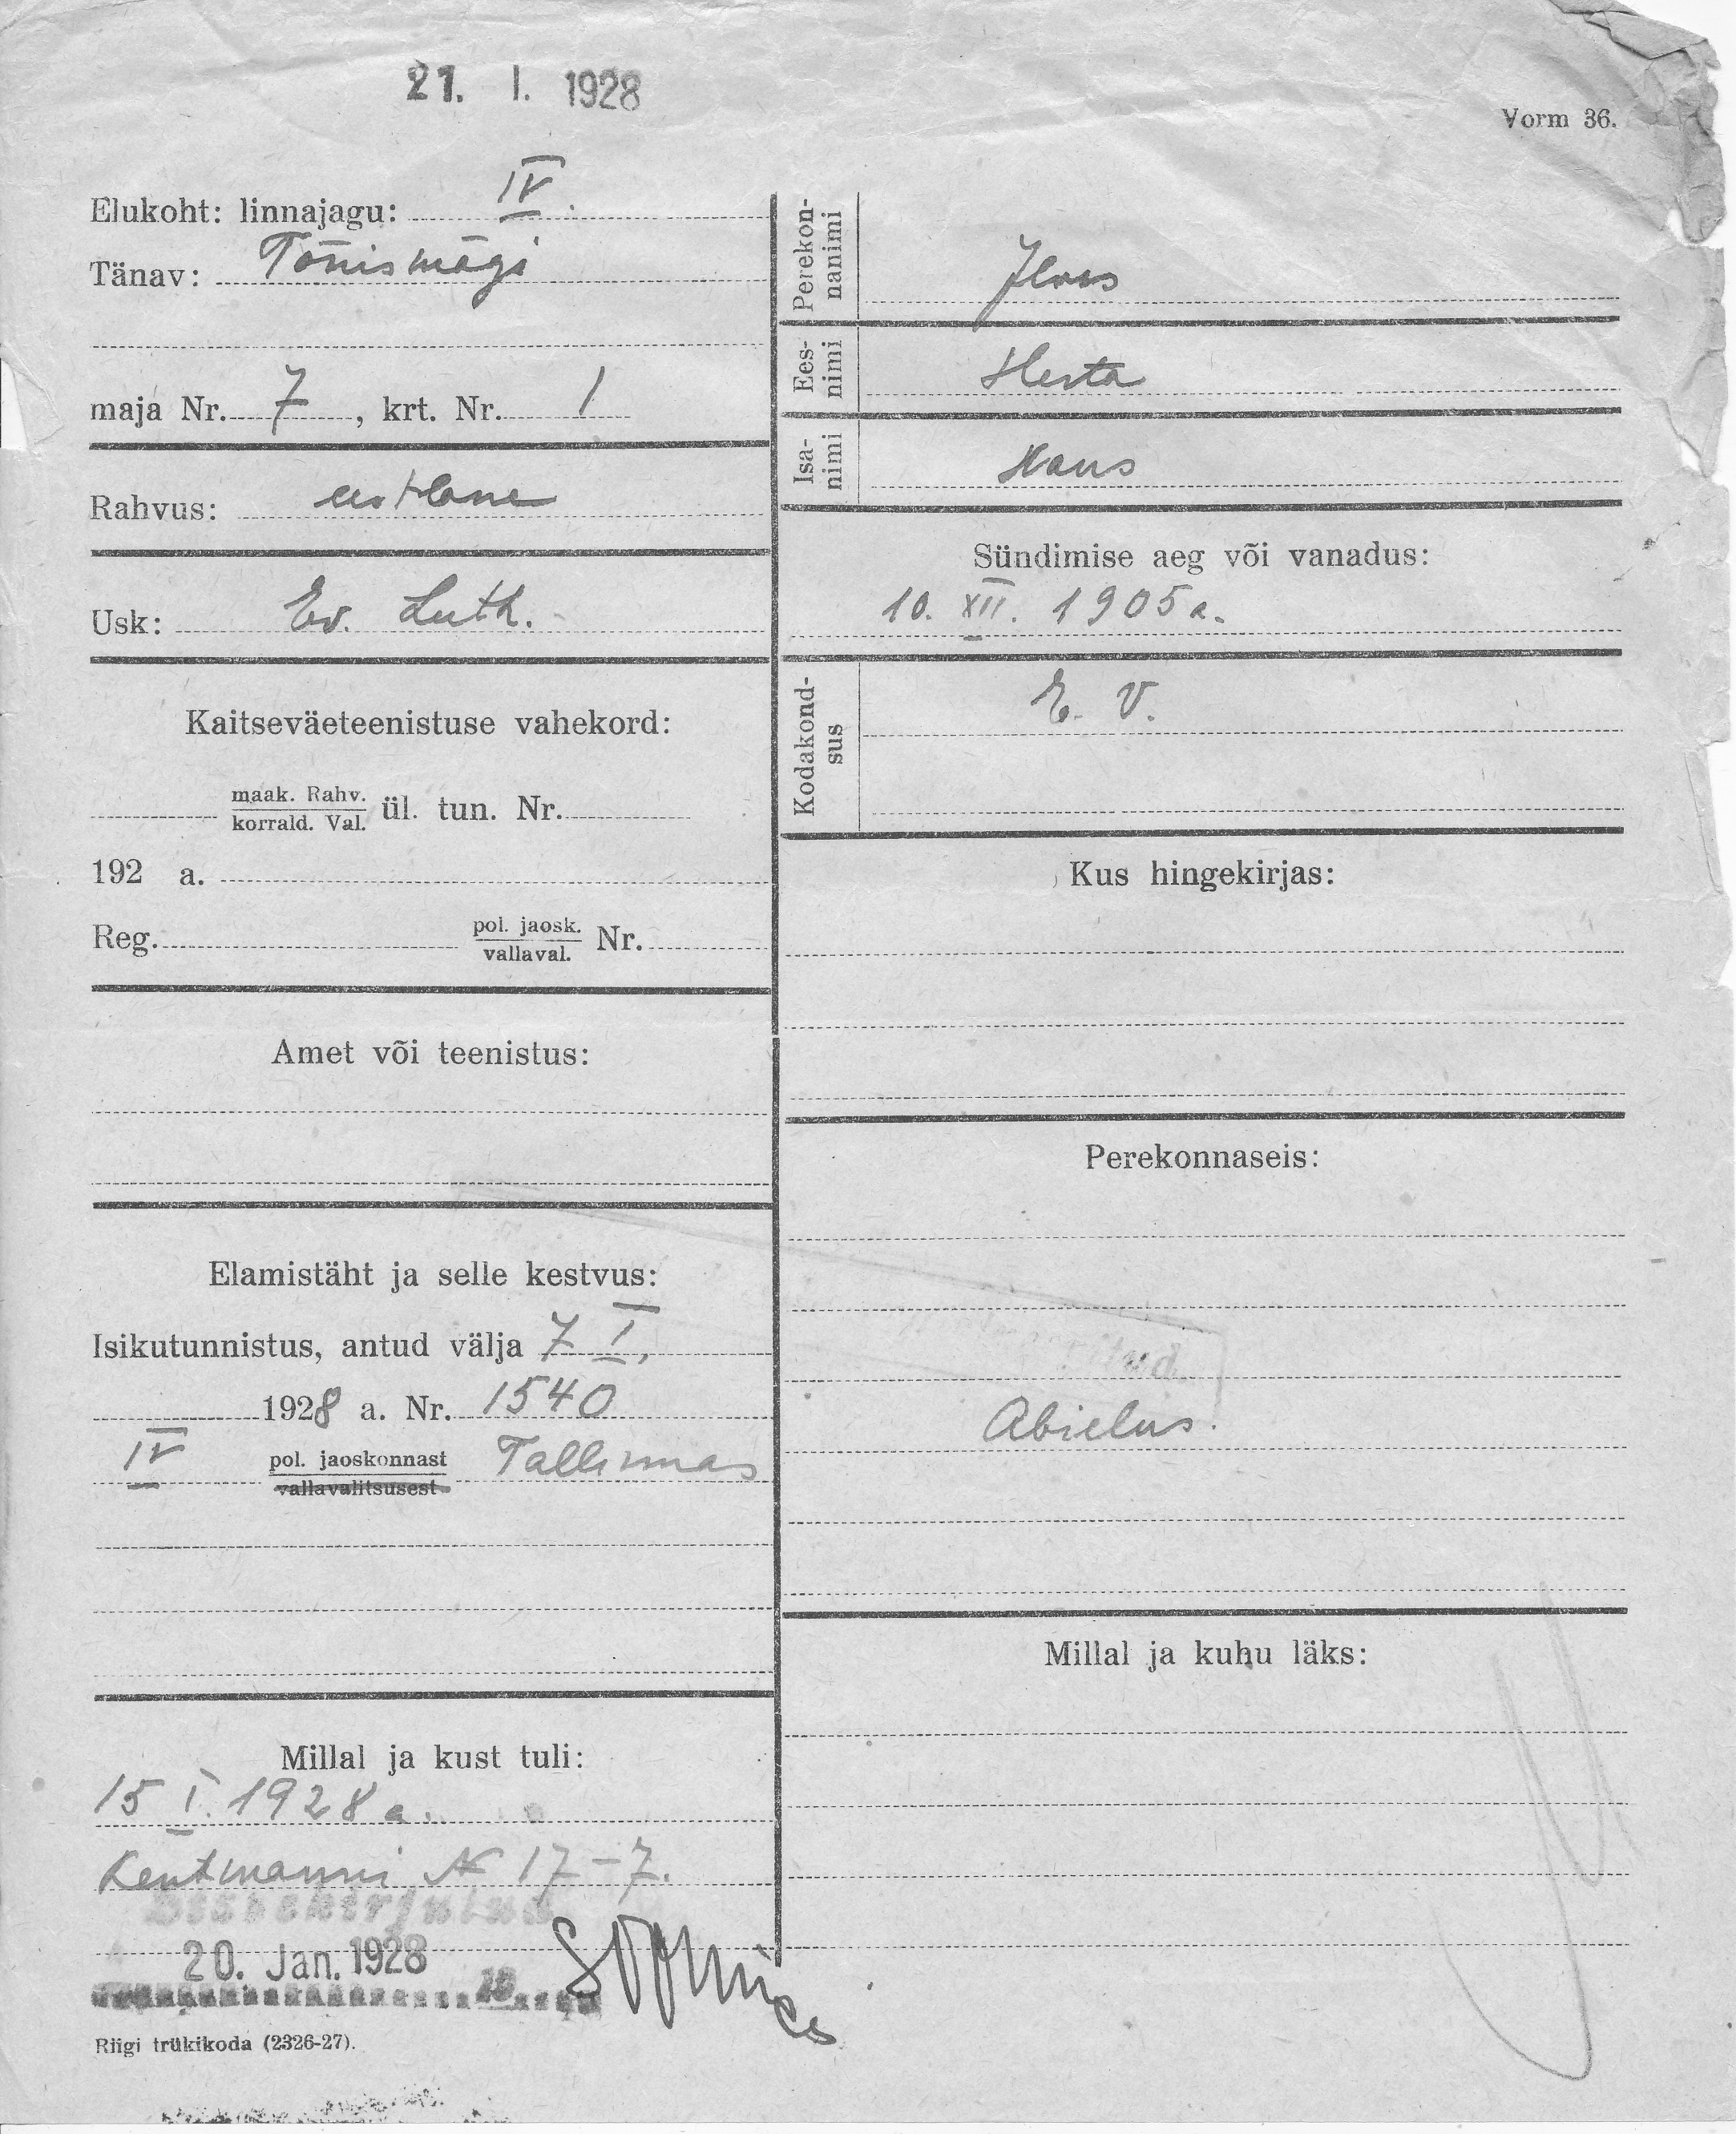 21. I. 1928
Vorm 36.
Elukoht: linnajagu: IV.
Tänav: Tõnismägi
maja Nr. 7, krt. Nr. 1
Rahvus: eestlane
Usk: Ev. Luth.
Kaitseväeteenistuse vahekord:
maak. Rahv.
korrald. Val.
ül. tun. Nr.
192 a.
Reg.
pol. jaosk.
vallaval.
Nr.
Amet või teenistus:
Elamistäht ja selle kestvus:
Isikutunnistus, antud välja 7 I,
1928 a. Nr. 1540
IV pol. jaoskonnast Tallinnas
vallavalitsusest
Millal ja kust tuli:
15 I. 1928 a.
Kentmanni № 17-7.
Sissekirjutud
20. Jan. 1928
Riigi trükikoda (2326-27).
Perekon-
nanimi
Ilves
Ees-
nimi
Herta
Isa-
nimi
Hans
Sündimise aeg või vanadus:
10. XII. 1905 a.
Kodakond-
sus
E. V.
Kus hingekirjas:
Perekonnaseis:
Abielus.
Millal ja kuhu läks: